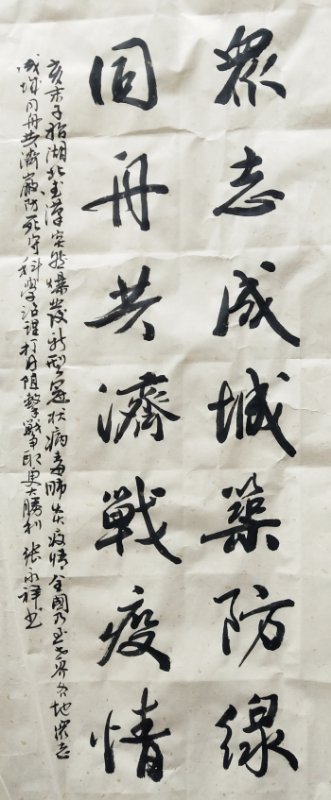 眾志成城築防線
同舟共濟戰疫情
亥末子指湖北武漢突然爆發新型冠狀病毒肺炎疫情全國乃至世界各地眾志
成城同舟共濟嚴防死守科學治理打丹阻擊戰爭取更大勝利 張永祥書